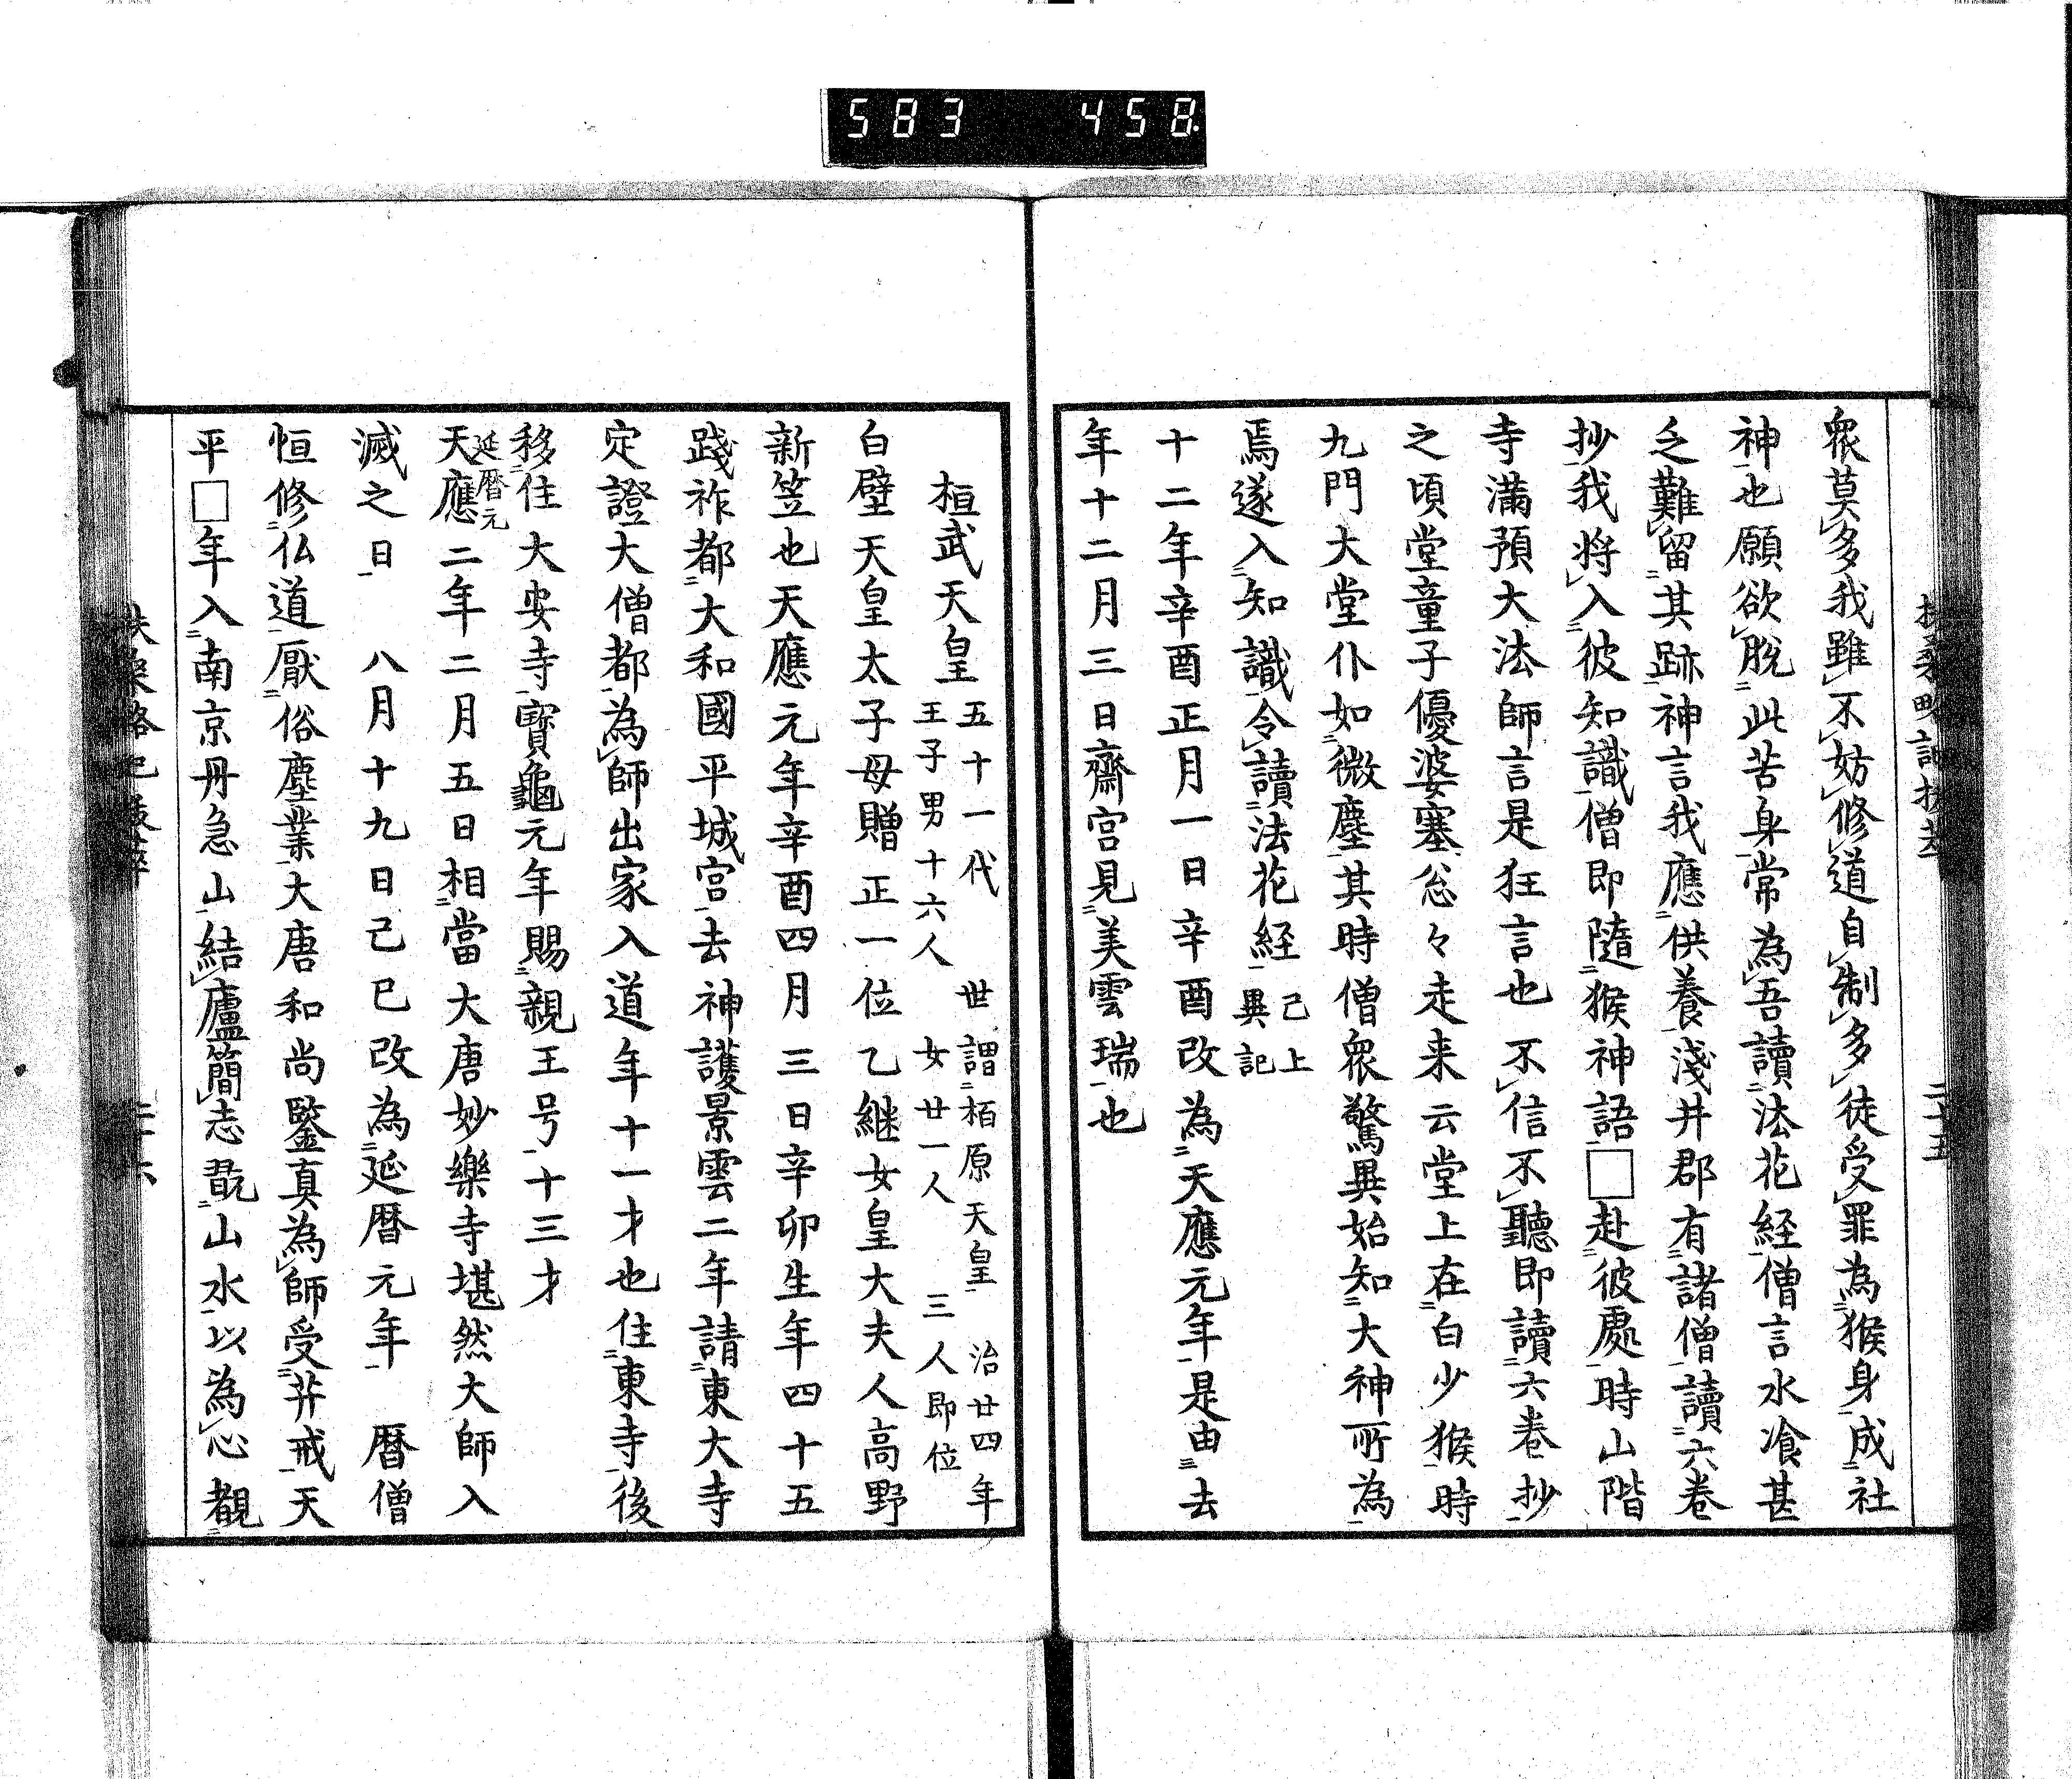 583 458
扶桑略記抜萃 二十五
衆莫多我雖不妨修道自制多徒受罪為猴身成社
神也願欲脱此苦身常為吾讀法花経僧言水飡甚
乏難留其跡神言我應供養淺井郡有諸僧讀六巻
抄我将入彼知識僧即隨猴神語□赴彼處時山階
寺満預大法師言是狂言也不信不聽即讀六巻抄
之頃堂童子優婆塞忩々走来云堂上在白少猴時
九門大堂仆如微塵其時僧衆驚異始知大神所為
焉遂入知識令讀法花経 已上異記
十二年辛酉正月一日辛酉改為天應元年是由去
年十二月三日齋宮見美雲瑞也
桓武天皇 五十一代 世謂栢原天皇 治廿四年
王子男十六人 女廿一人 三人即位
白壁天皇太子母贈正一位乙継女皇大夫人高野
新笠也天應元年辛酉四月三日辛卯生年四十五
踐祚都大和國平城宮去神護景雲二年請東大寺
定證大僧都為師出家入道年十一才也住東寺後
移住大安寺寶龜元年賜親王号十三才
延暦元
天應二年二月五日相當大唐妙樂寺堪然大師入
滅之日 八月十九日己巳改為延暦元年 暦僧
恒修仏道厭俗塵業大唐和尚鑒真為師受𦬇戒天
平□年入南京丹急山結廬簡志翫山水以為心観
扶桑略記抜萃 二十六